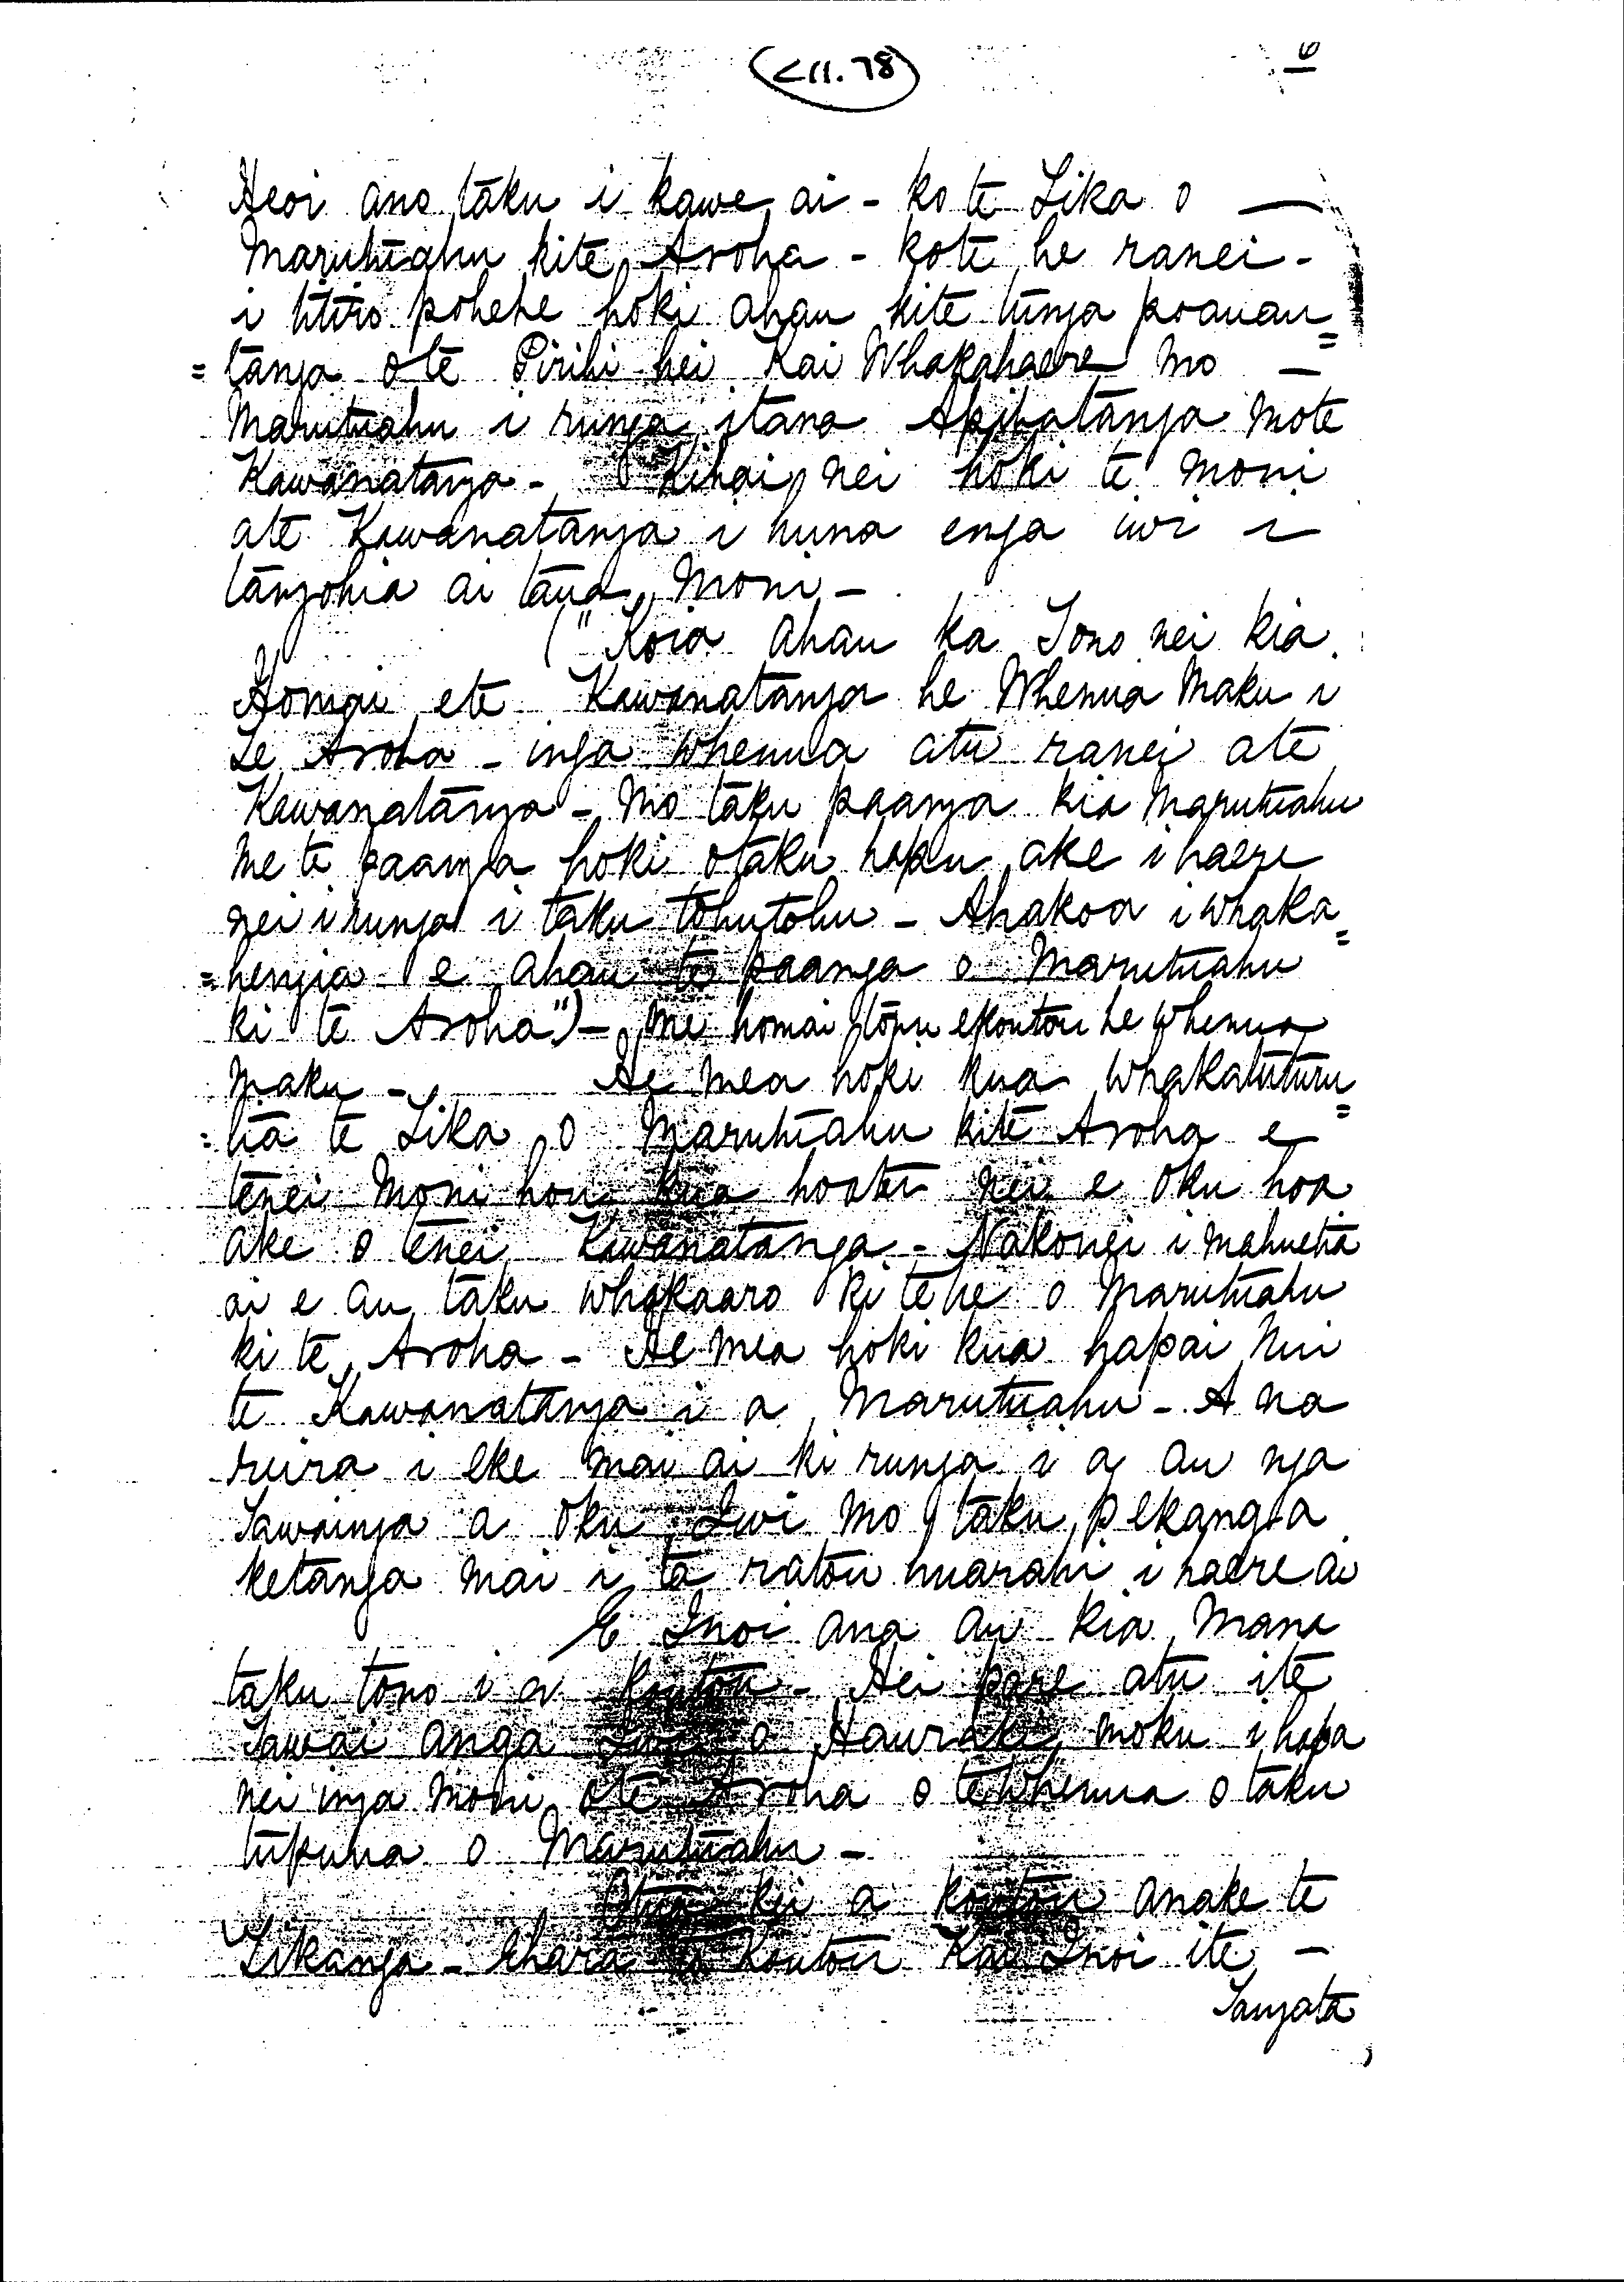 C11.78
6
Heoi ano taku i kawe ai - ko te Tika o -
Marutuahu kite Aroha - kote he ranei -
i titiro pohehe hoki ahau kite tunga poauau=
=tanga ote Pirihi hei Kai Whakahaere mo -
Marutuahu i runga itana Apihatanga mote
Kawanatanga - Kihai nei hoki te moni
ate Kawanatanga i huna enga iwi i
tangohia ai taua Moni -
("Koia ahau ka Tono nei kia
Homai ete Kawanatanga he Whenua Maku i
Te Aroha - inga whenua atu ranei ate
Kawanatanga - Mo taku paanga kia Marutuahu
me te paanga hoki otaku hapu ake i haere
nei i runga i taku tohutohu - Ahakoa i whaka=
=hengia e ahau te paanga o Marutuahu
ki te Aroha") - Me homai tonu ekoutou he whenua
maku - He mea hoki kua whakatuturu=
=tia te Tika o Marutuahu kite Aroha e
tenei Moni hou kua hoatu nei e oku hoa
ake o tenei Kawanatanga - Nakonei i mahuetia
ai e au taku whakaaro ki te he o Marutuahu
ki te Aroha - He mea hoki kua hapai nui
te Kawanatanga i a Marutuahu - A na
reira i eke mai ai ki runga i a au nga
Tawainga a oku Iwi mo taku pekanga
ketanga mai i ta ratou huarahi i haere ai
E Inoi ana au kia Mana
taku tono i a koutou - Hei pare atu ite
Tawai anga Iwi o Hauraki moku i hapa
nei inga moni ote Aroha o te whenua o taku
tupuna o Marutuahu -
Otira kei a koutou anake te
Tikanga - Ehara ia koutou Kai Inoi ite -
Tangata